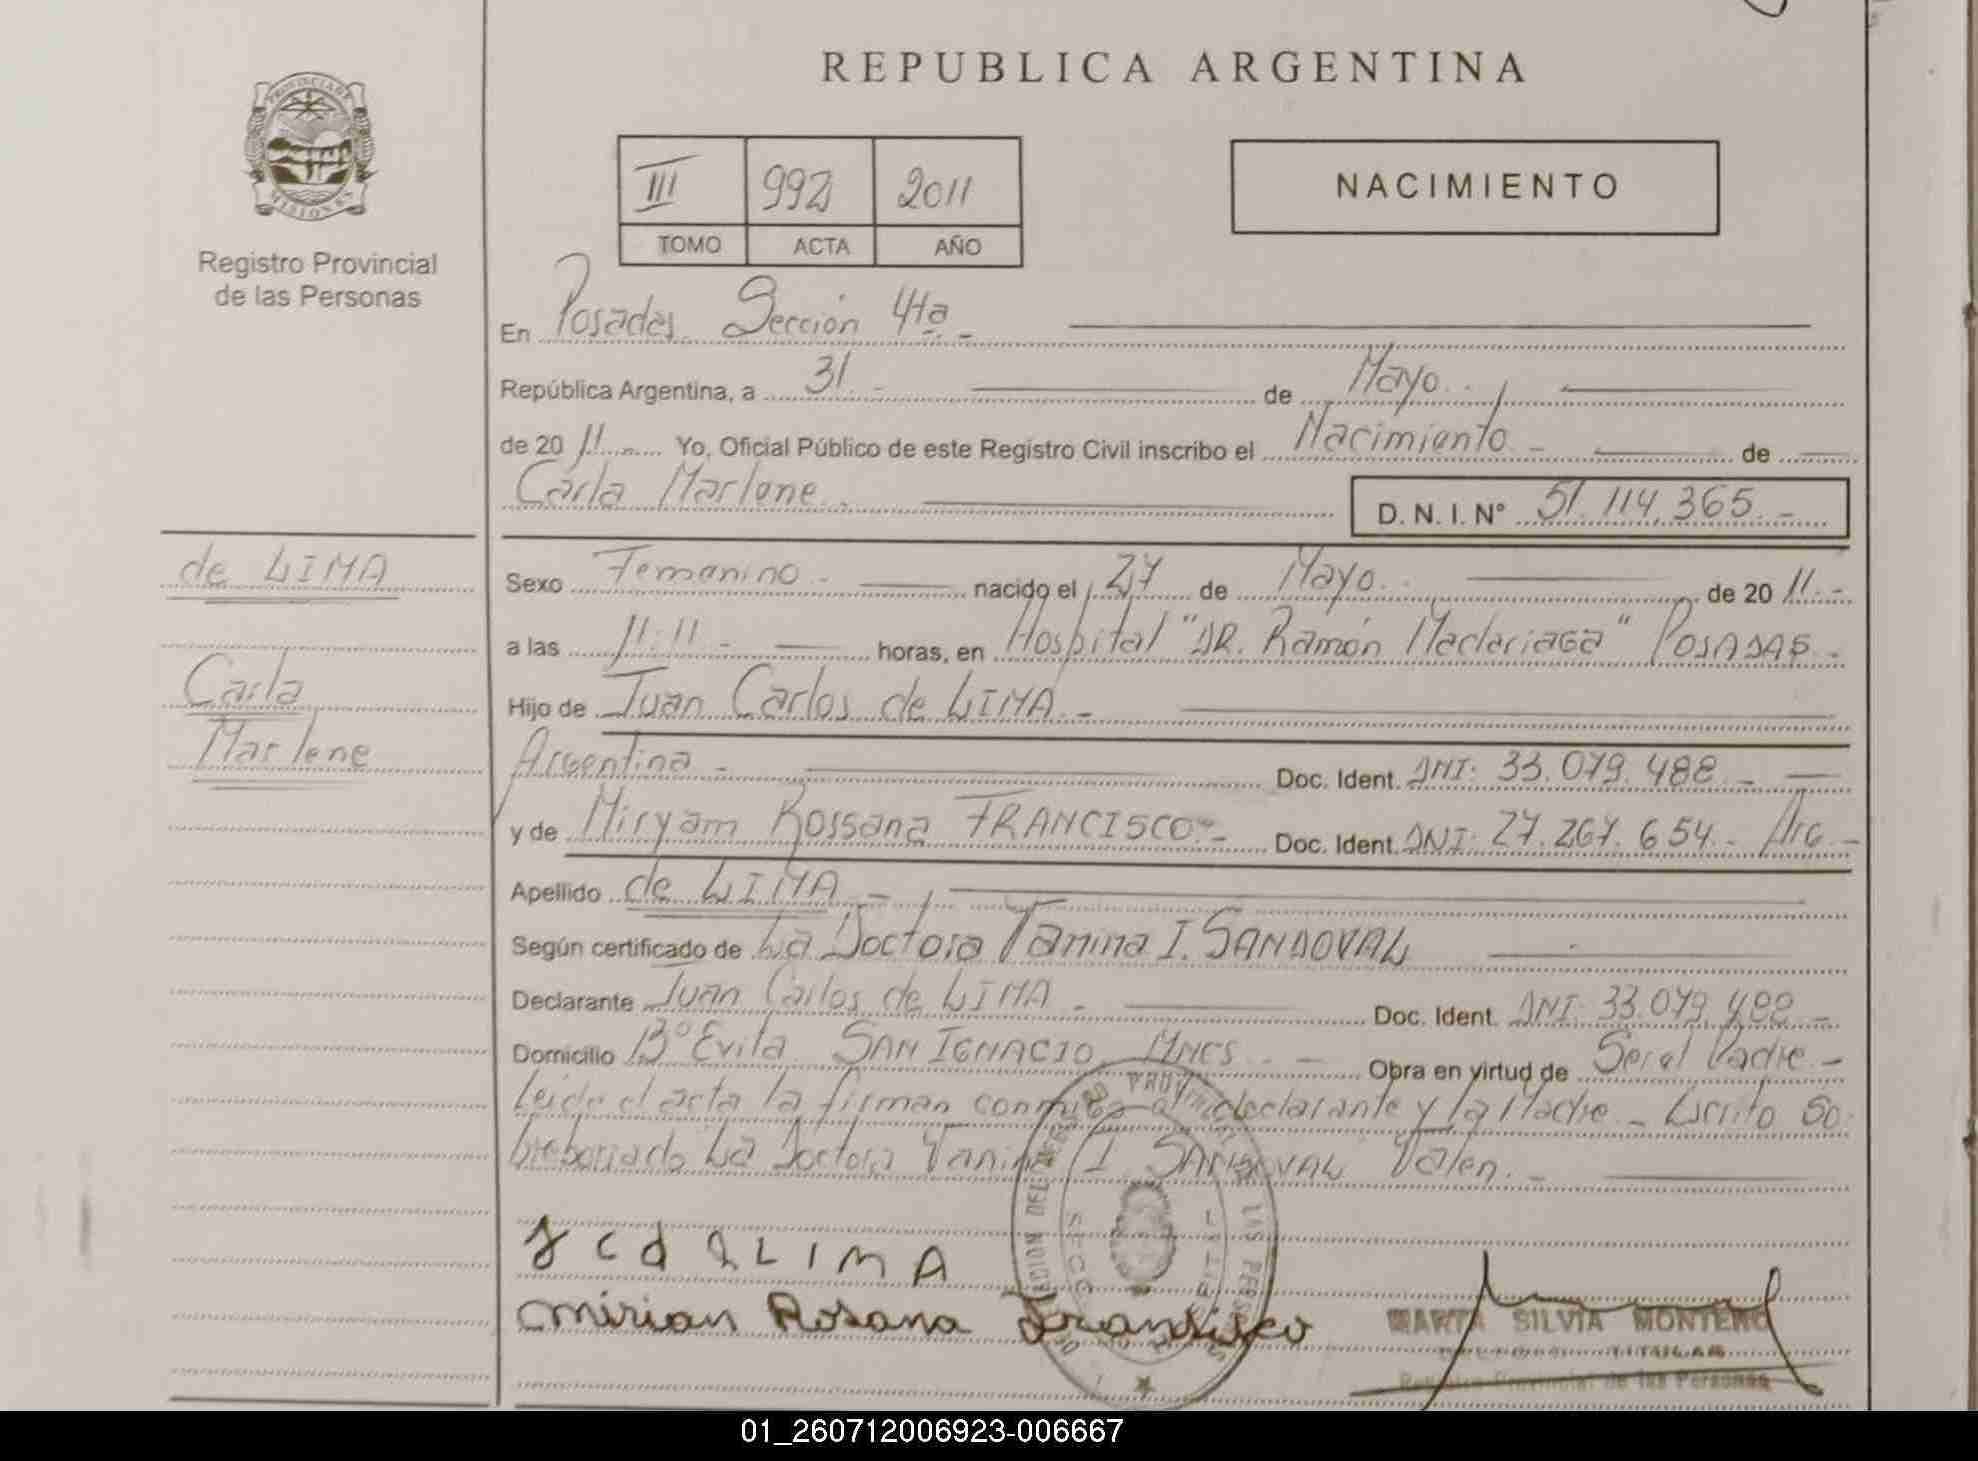 REPUBLICA ARGENTINA
PROVINCIA DE
MISIONES
Registro Provincial
de las Personas
III 992 2011
TOMO ACTA AÑO
NACIMIENTO
En Posadas Sección 4ta -
República Argentina, a 31 - de Mayo
de 20 11 Yo, Oficial Público de este Registro Civil inscribo el Nacimiento - de
Carla Marlene D. N. I. N° 51.114.365 -
de LIMA
Carla
Marlene
Sexo Femenino - nacido el 27 de Mayo de 20 11 -
a las 11:11 - horas, en Hospital "DR. Ramón Madariaga" POSADAS -
Hijo de Juan Carlos de LIMA -
Argentina - Doc. Ident. DNI: 33.079.488 -
y de Miryam Rossana FRANCISCO - Doc. Ident. DNI: 27.267.654 - Arg -
Apellido de LIMA -
Según certificado de La Doctora Tanina I. SANDOVAL
Declarante Juan Carlos de LIMA - Doc. Ident. DNI: 33.079.488 -
Domicilio B° Evita SAN IGNACIO Mnes - Obra en virtud de Ser el Padre -
Leida el acta la firman conmigo el declarante y la Madre - Escrito So
breborrado La Doctora Tanina I. SANDOVAL Valen. -
J C d LIMA
Mirian Rosana Francisco
MARTA SILVIA MONTERO
TITULAR
Registro Provincial de las Personas
01_260712006923-006667